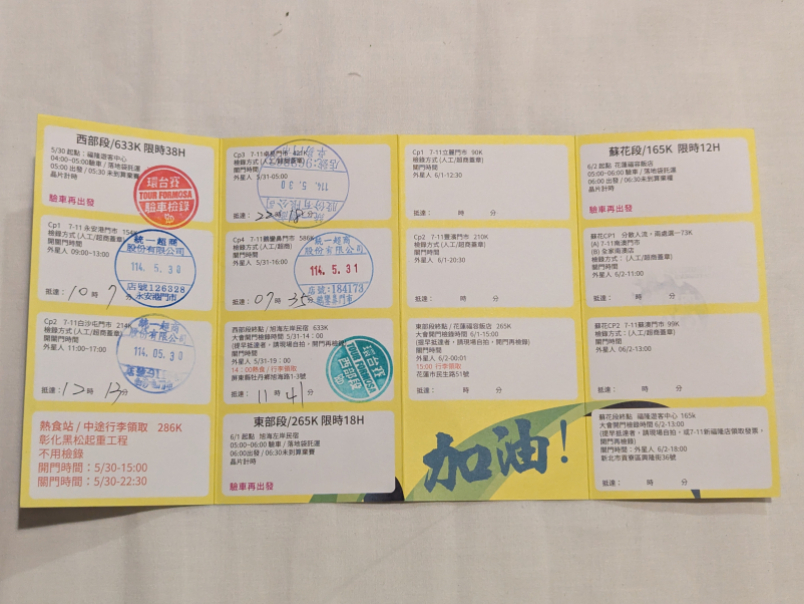 西部段/633K 限時38H
5/30 起點：福隆遊客中心
04:00~05:00驗車 / 落地袋託運
05:00 出發 / 05:30 未到算棄賽
晶片計時
驗車再出發
環台賽
TOUR FORMOSA
驗車檢錄
Cp1 7-11 永安港門市 154K
檢錄方式 (人工/超商蓋章)
開關門時間
外星人 09:00~13:00
抵達：10 時 7 分
統一超商
股份有限公司
114. 5. 30
店號126328
永安港門市
Cp2 7-11白沙屯門市 214K
檢錄方式 (人工/超商蓋章)
開關門時間
外星人 11:00~17:00
抵達：12 時 13 分
統一超商
股份有限公司
114. 05. 30
熱食站 / 中途行李領取 286K
彰化黑松起重工程
不用檢錄
開門時間：5/30-15:00
關門時間：5/30-22:30
Cp3 7-11
檢錄方式 (人工/超商蓋章)
關門時間
外星人 5/31-05:00
抵達：22 時 18 分
114. 5. 30
Cp4 7-11鵝鑾鼻門市 586K
檢錄方式 (人工/超商)
關門時間
外星人 5/31-16:00
抵達：07 時 35 分
統一超商
股份有限公司
114. 5. 31
店號:184173
鵝鑾鼻門市
西部段終點 / 旭海左岸民宿 633K
大會開門檢錄時間 5/31-14：00
(提早抵達者，請現場自拍，開門再檢錄)
關門時間
外星人 5/31-19：00
14：00熱食 / 行李領取
屏東縣牡丹鄉旭海路1-3號
抵達：11 時 41 分
環台賽
TOUR FORMOSA
西部段
東部段/265K 限時18H
6/1 起點 旭海左岸民宿
05:00~06:00 驗車 / 落地袋託運
06:00出發 / 06:30未到算棄賽
晶片計時
驗車再出發
Cp1 7-11立麗門市 90K
檢錄方式 (人工/超商蓋章)
關門時間
外星人 6/1-12:30
抵達： 時 分
CP2 7-11豐濱門市 210K
檢錄方式 (人工/超商蓋章)
關門時間
外星人 6/1-20:30
抵達： 時 分
東部段終點 / 花蓮福容飯店 265K
大會開門檢錄時間 6/1-15:00
(提早抵達者，請現場自拍，開門再檢錄)
關門時間
外星人 6/2-00:01
15:00 行李領取
花蓮市民生路51號
抵達： 時 分
加油!
蘇花段/165K 限時12H
6/2 起點 花蓮福容飯店
05:00~06:00 驗車 / 落地袋託運
06:00出發 / 06:30未到算棄權
晶片計時
驗車再出發
蘇花CP1 分散人流，兩處選一73K
(A) 7-11南澳門市
(B) 全家南澳店
檢錄方式：(人工/超商蓋章)
關門時間
外星人 6/2-11:00
抵達： 時 分
蘇花CP2 7-11蘇濱門市 99K
檢錄方式 (人工/超商蓋章)
關門時間
外星人 06/2-13:00
抵達： 時 分
蘇花段終點 福隆遊客中心 165k
大會開門檢錄時間 6/2-13:00
(提早抵達者，請現場自拍，或7-11新福隆店領取發票，
開門再檢錄)
關門時間：外星人 6/2-18:00
新北市貢寮區興隆街36號
抵達： 時 分